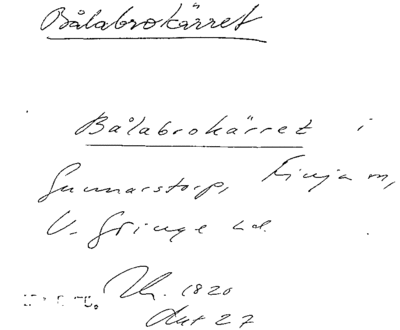 Bålabrokärret
Bålabrokärret i
Gunnarstorp, Finja sn,
V. Göinge hd.
1820
Akt 27